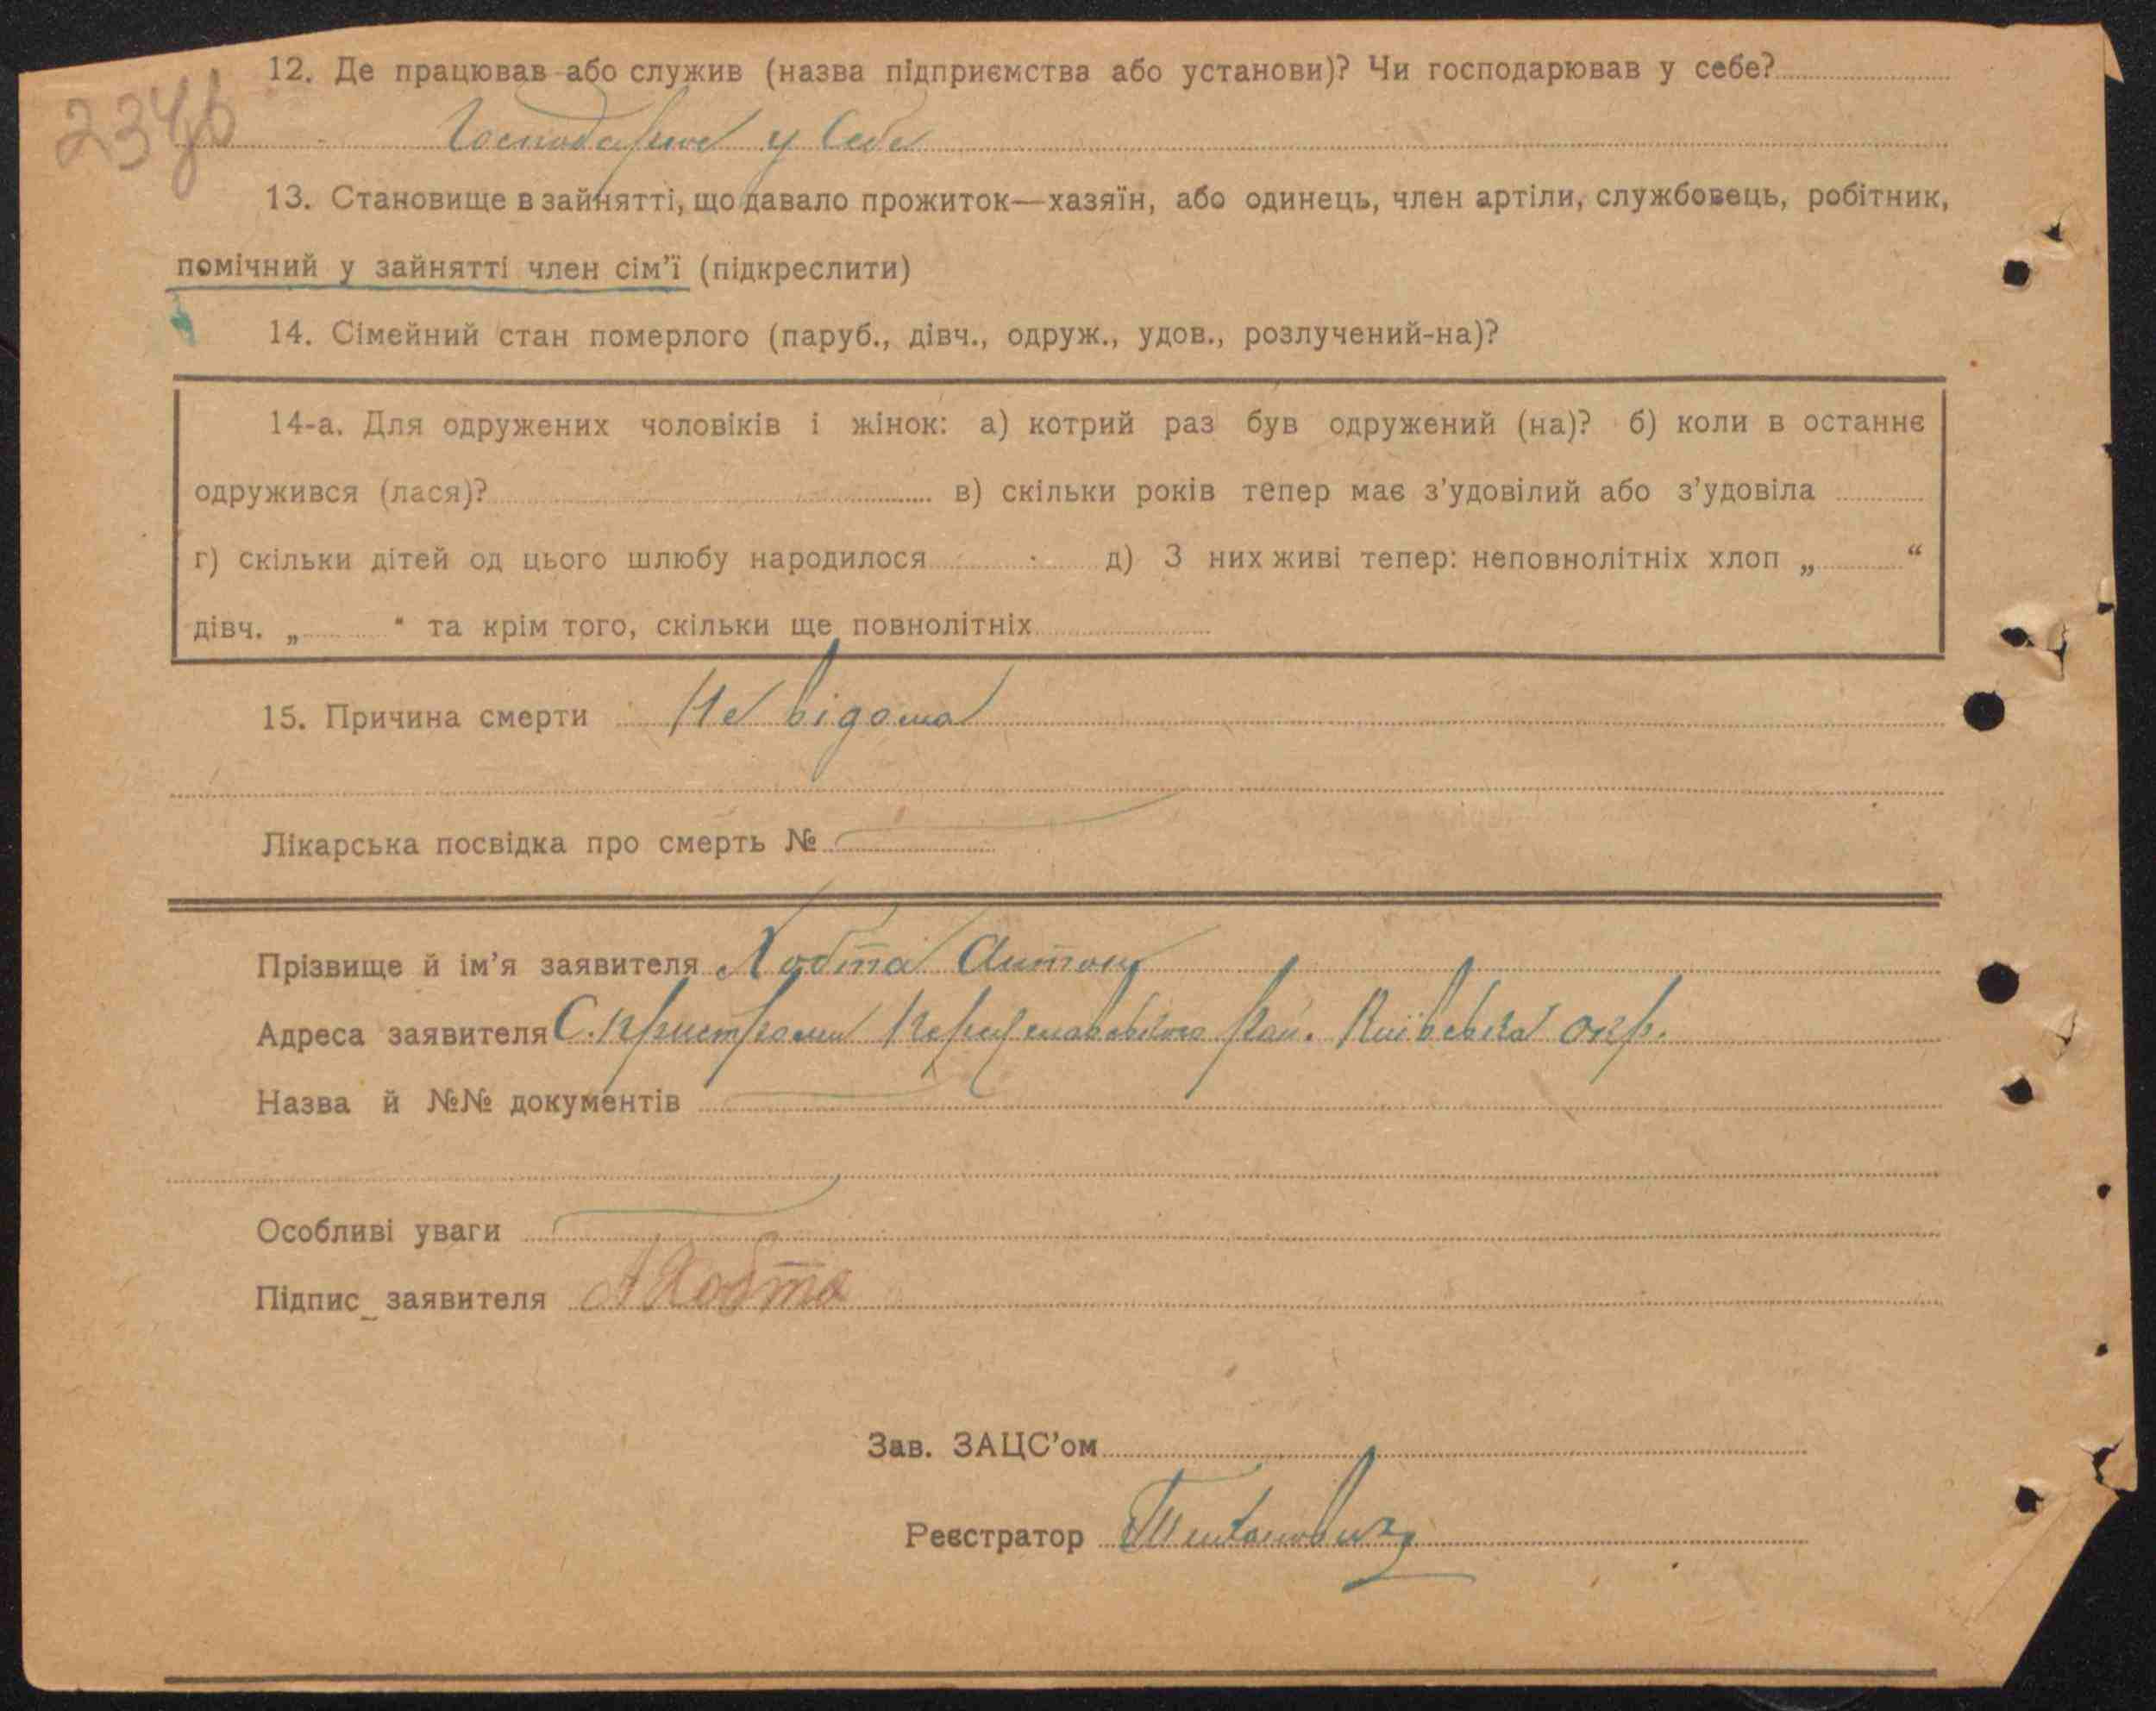 12. Де працював або служив (назва підприємства або установи)? Чи господарював у себе?
234
Господарює у себе
13. Становище в зайнятті, що давало прожиток—хазяїн, або одинець, член артіли, службовець, робітник,
помічний у зайнятті член сім'ї (підкреслити)
14. Сімейний стан померлого (паруб., дівч., одруж., удов., розлучений-на)?
14-а. Для одружених чоловіків і жінок: а) котрий раз був одружений (на)? б) коли в останнє
одружився (лася)? в) скільки років тепер має з'удовілий або з'удовіла
г) скільки дітей од цього шлюбу народилося д) З них живі тепер: неповнолітніх хлоп „ “
дівч. „ “ та крім того, скільки ще повнолітніх
15. Причина смерти Не відома
Лікарська посвідка про смерть №
Прізвище й ім'я заявителя Хобта Антон
Адреса заявителя С. рай. Київська окр.
Назва й №№ документів
Особливі уваги
Підпис заявителя А Хобта
Зав. ЗАЦС'ом
Реєстратор